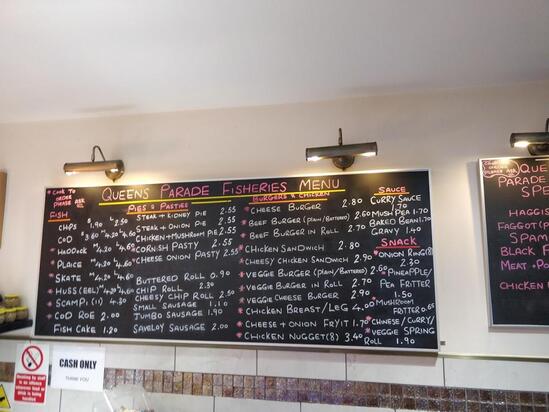 * COOK TO
ORDER
PLEASE ASK
QUEENS PARADE FISHERIES MENU
FISH
CHIPS S 1.90 L 2.50
COD S 3.60 M 4.20 L 4.60
* HADDOCK M 4.20 L 4.60
PLAICE M 4.20 L 4.60
* SKATE M 4.20 L 4.60
* HUSS (EEL) M 4.20 L 4.60
* SCAMPI (11) 4.30
* COD ROE 2.00
FISH CAKE 1.20
PIES & PASTIES
STEAK + KIDNEY PIE 2.55
STEAK + ONION PIE 2.55
CHICKEN + MUSHROOM PIE 2.55
* CORNISH PASTY 2.55
CHEESE ONION PASTY 2.55
BUTTERED ROLL 0.90
CHIP ROLL 2.30
CHEESY CHIP ROLL 2.50
SMALL SAUSAGE 1.10
JUMBO SAUSAGE 1.90
SAVELOY SAUSAGE 2.00
BURGERS & CHICKEN
* CHEESE BURGER 2.80
* BEEF BURGER (PLAIN/BATTERED) 2.60
* BEEF BURGER IN ROLL 2.70
* CHICKEN SANDWICH 2.80
* CHEESY CHICKEN SANDWICH 2.90
* VEGGIE BURGER (PLAIN/BATTERED) 2.60
* VEGGIE BURGER IN ROLL 2.70
* VEGGIE CHEESE BURGER 2.90
* CHICKEN BREAST/LEG 4.00
* CHEESE + ONION FRYIT 1.70
* CHICKEN NUGGET (8) 3.40
SAUCE
CURRY SAUCE
1.70
MUSH PEA 1.70
BAKED BEAN 1.70
GRAVY 1.40
SNACK
* ONION RING (8)
2.30
* PINEAPPLE/
PEA FRITTER
1.50
* MUSHROOM
FRITTER 0.60
* CHINESE/CURRY/
* VEGGIE SPRING
ROLL 1.90
QUEENS
PARADE
SPE
HAGGIS
FAGGOT (P
SPAM
BLACK F
MEAT + PO
CHICKEN
CASH ONLY
THANK YOU